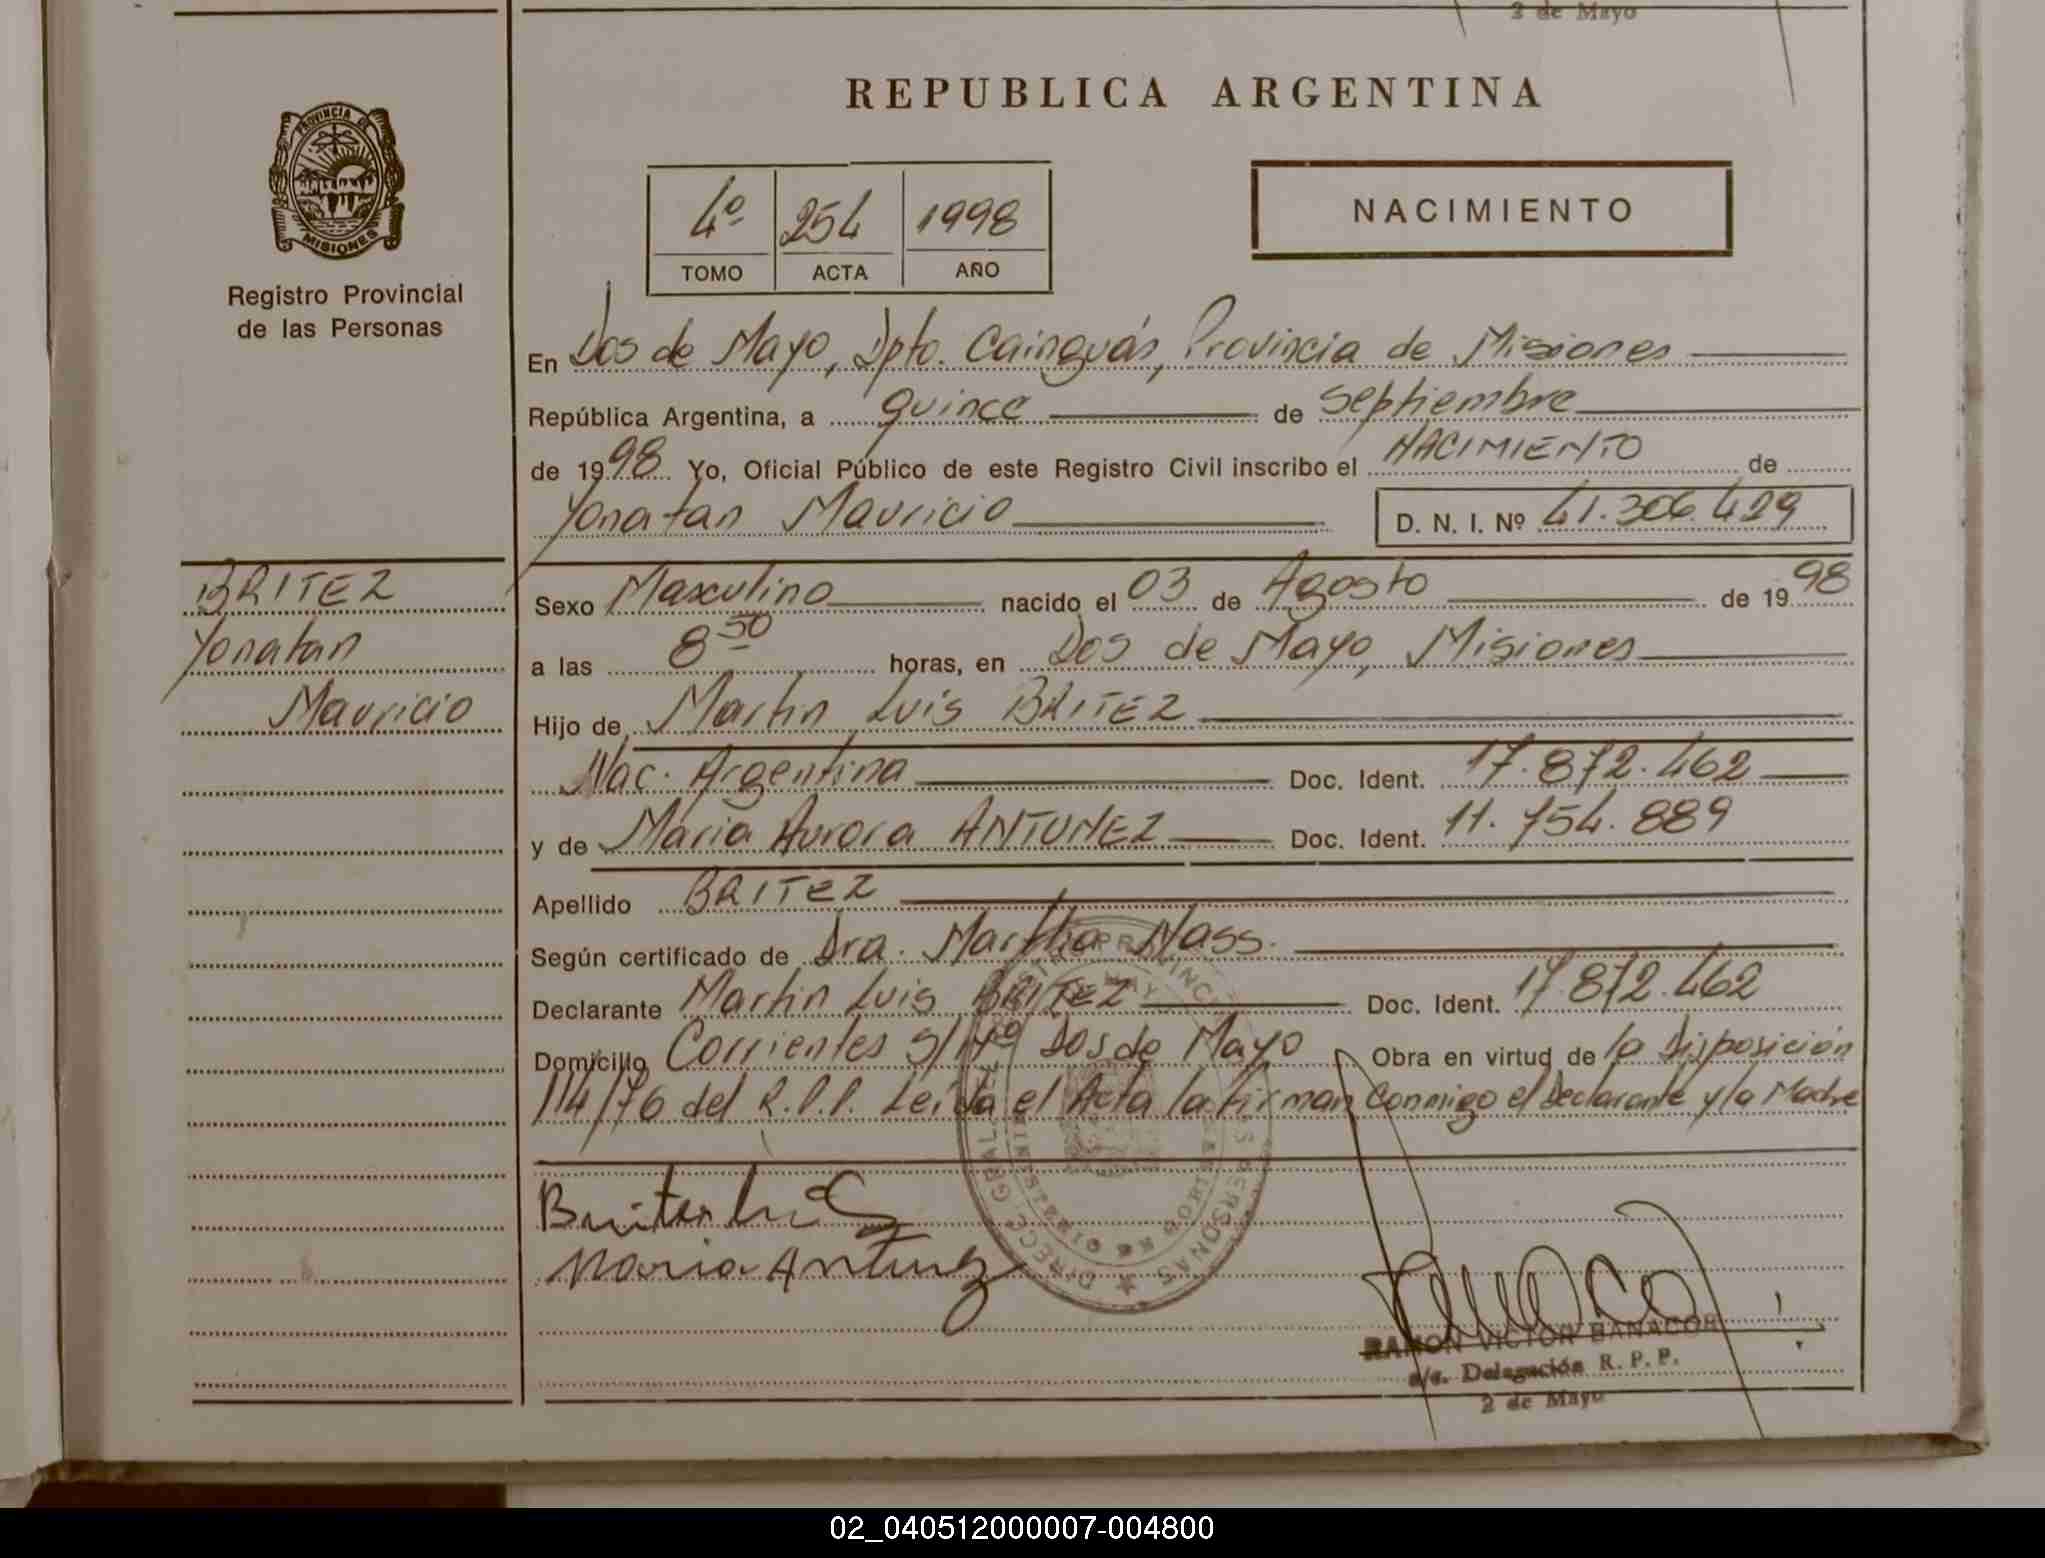 2 de Mayo
REPUBLICA ARGENTINA
PROVINCIA DE
MISIONES
Registro Provincial
de las Personas
4º 254 1998
TOMO ACTA AÑO
NACIMIENTO
En Dos de Mayo, Dpto. Cainguás, Provincia de Misiones
República Argentina, a quince de Septiembre
de 1998 Yo, Oficial Público de este Registro Civil inscribo el NACIMIENTO de
Yonatan Mauricio D. N. I. Nº 41.306.429
BRITEZ
Yonatan
Mauricio
Sexo Masculino nacido el 03 de Agosto de 1998
a las 8 50 horas, en Dos de Mayo, Misiones
Hijo de Martin Luis BRITEZ
Nac. Argentina Doc. Ident. 17.872.462
y de Maria Aurora ANTUNEZ Doc. Ident. 11.754.889
Apellido BRITEZ
Según certificado de Dra. Martha Mass.
Declarante Martin Luis BRITEZ Doc. Ident. 17.872.462
Domicilio Corrientes S/Nº Dos de Mayo Obra en virtud de la Disposición
114/76 del R.P.P. Leída el Acta la firman conmigo el Declarante y la Madre
Britez Luis
Maria Antunez
RAMON VICTOR BANACOR
a/c. Delegación R. P. P.
2 de Mayo
02_040512000007-004800